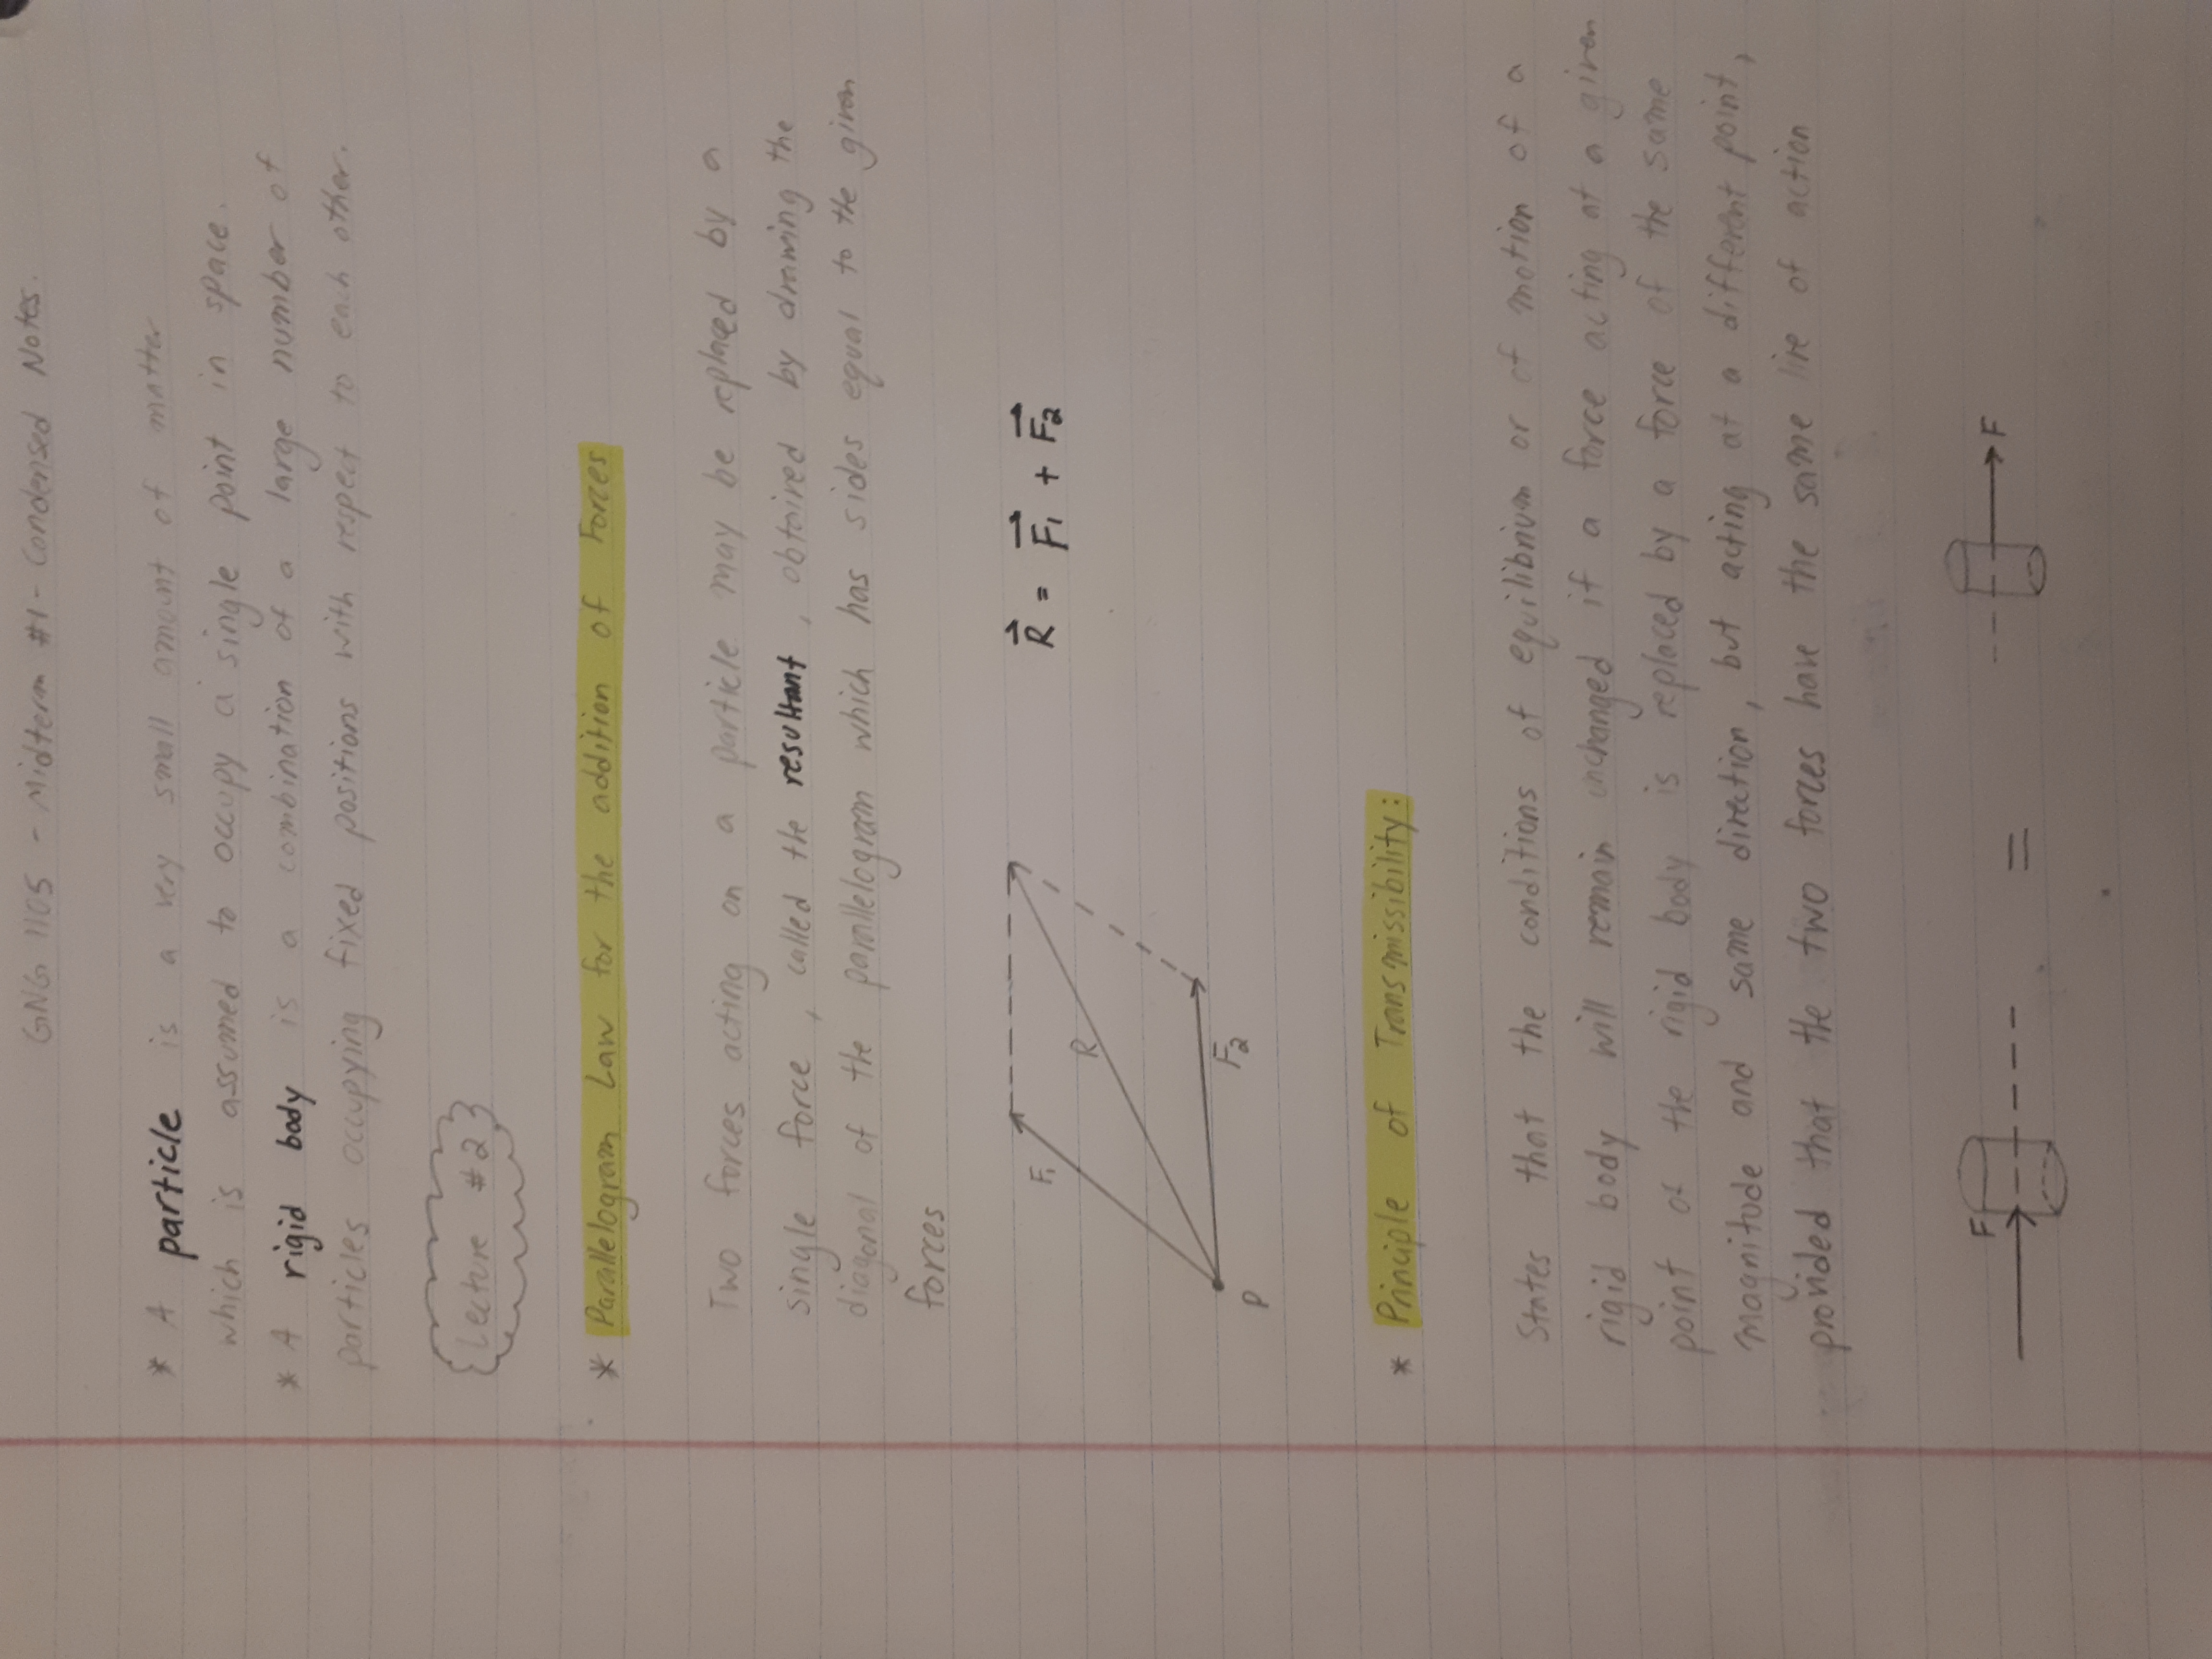 GNG 1105 - Midterm #1 - Condensed Notes.
* A particle is a very small amount of matter
which is assumed to occupy a single point in space.
* A rigid body is a combination of a large number of
particles occupying fixed positions with respect to each other.
Lecture #2
* Parallelogram Law for the addition of Forces
Two forces acting on a particle may be replaced by a
single force, called the resultant, obtained by drawing the
diagonal of the parallelogram which has sides equal to the given
forces
F₁
R
F₂
P
R = F₁ + F₂
* Principle of Transmissibility:
States that the conditions of equilibrium or of motion of a
rigid body will remain unchanged if a force acting at a given
point of the rigid body is replaced by a force of the same
magnitude and same direction, but acting at a different point,
provided that the two forces have the same line of action
F
=
F